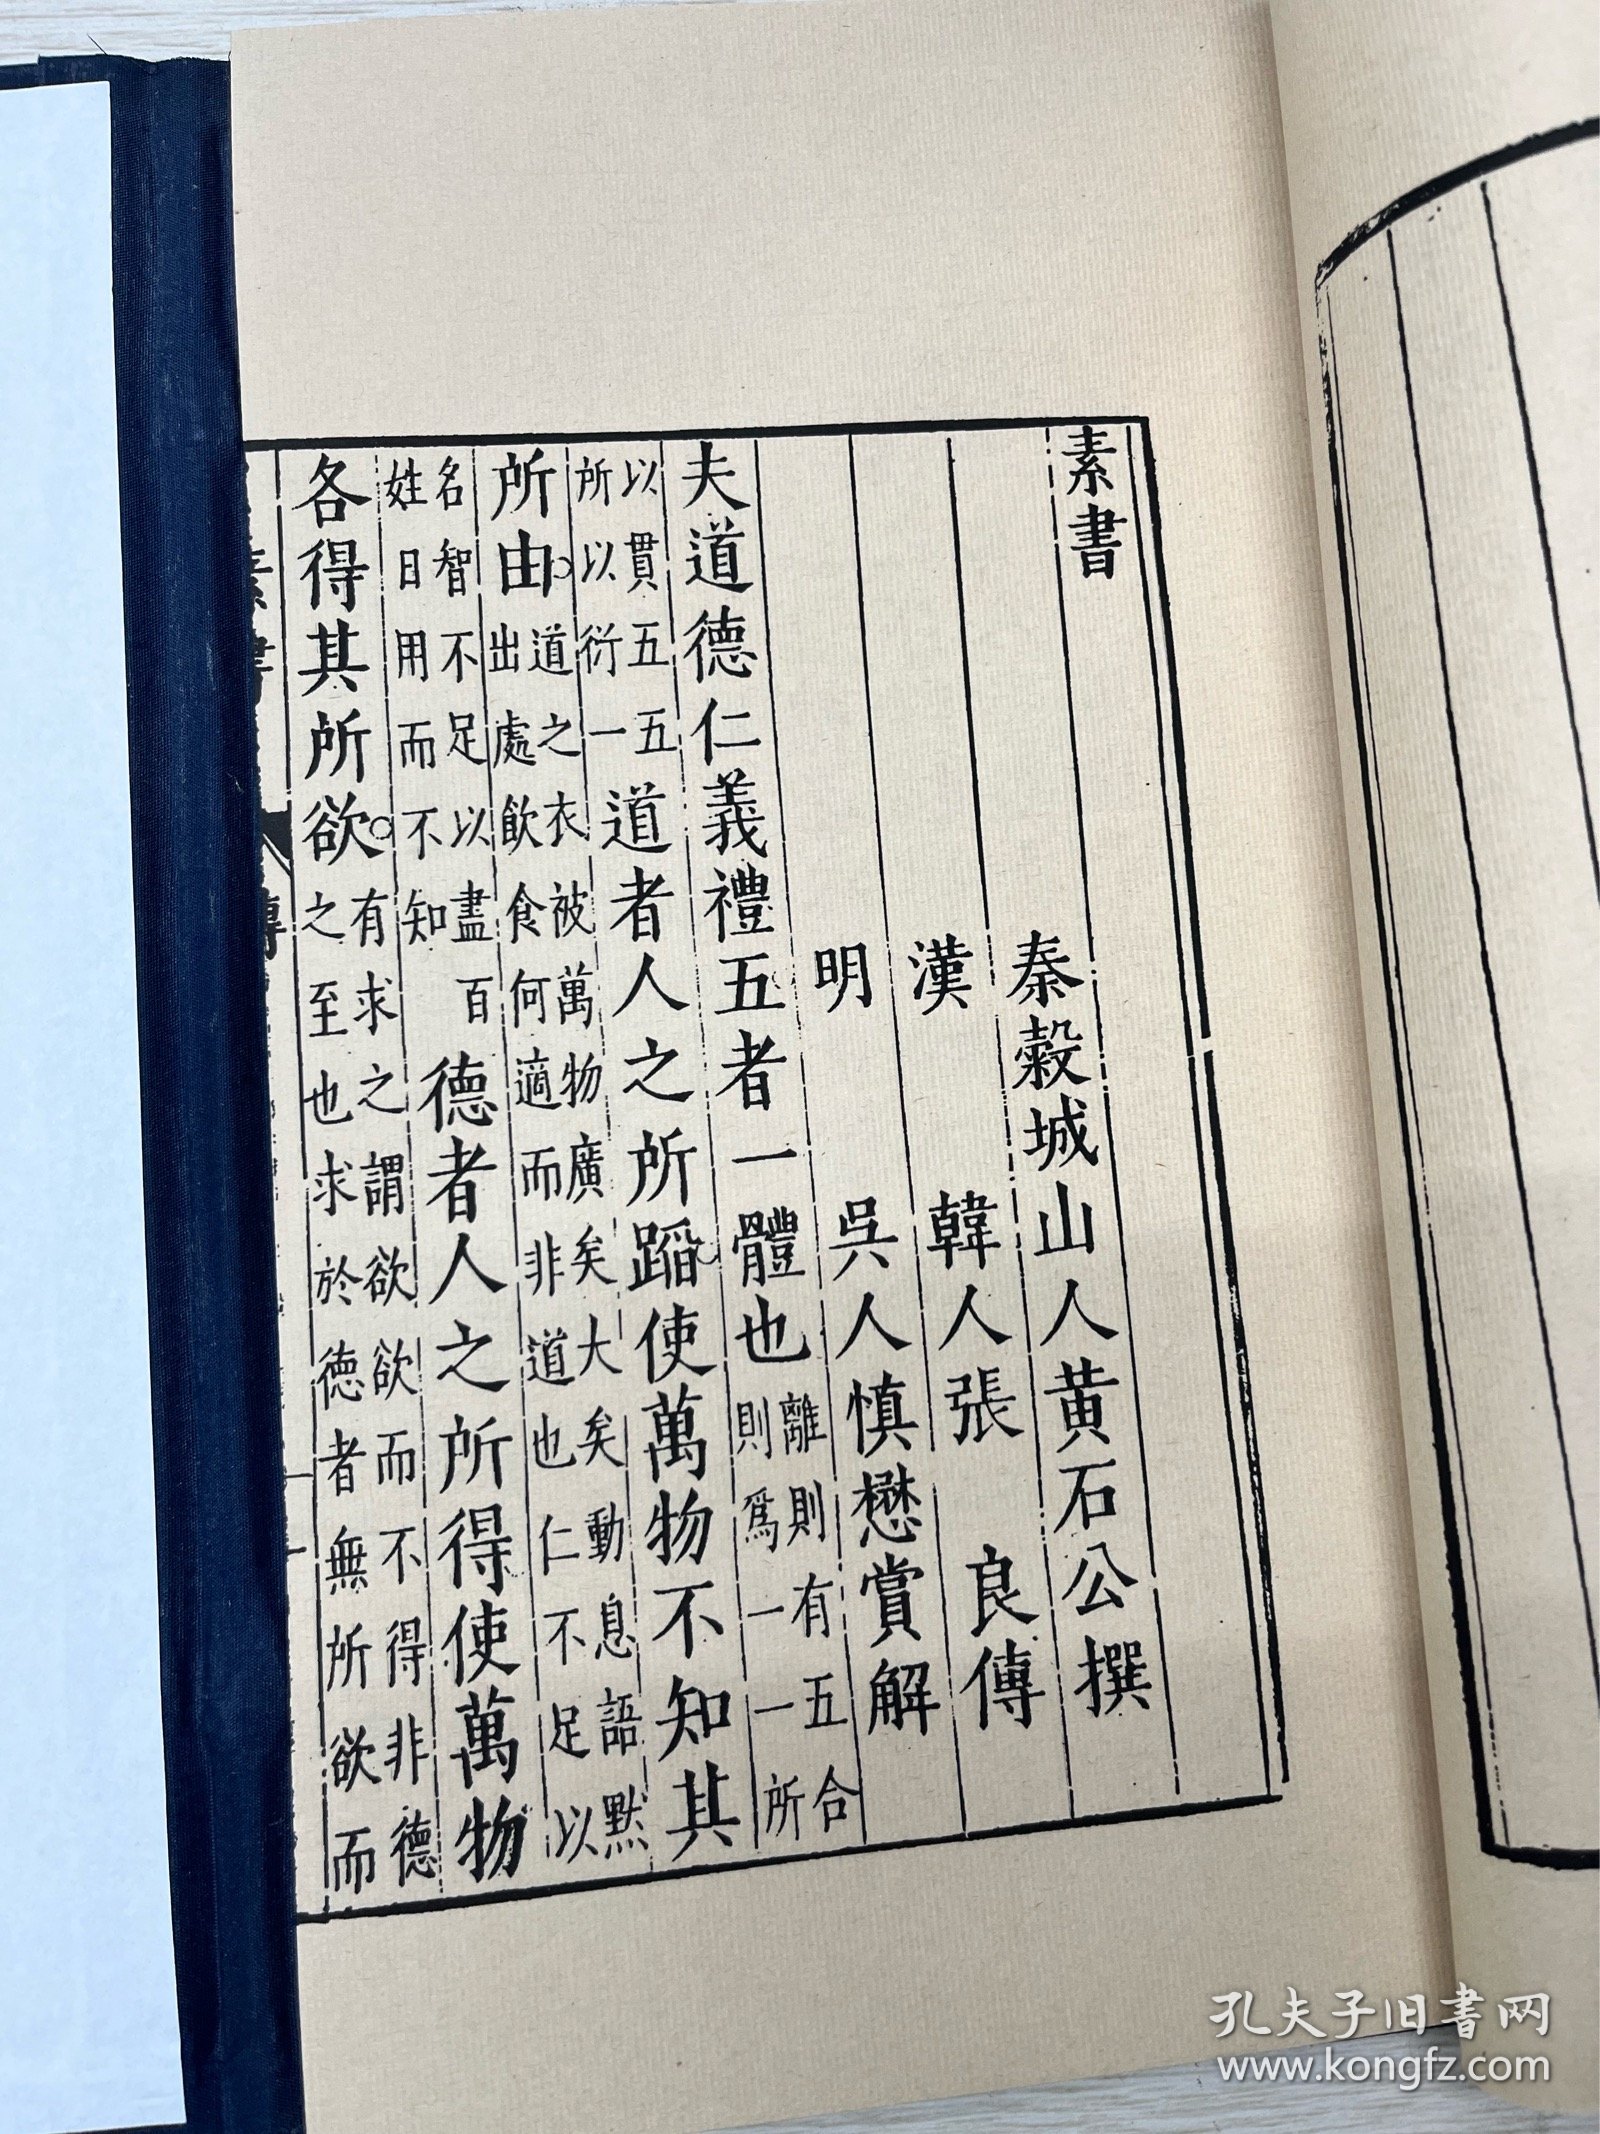 素書
秦穀城山人黄石公撰
漢 韓人張 良傳
明 吳人慎懋賞解
夫道德仁義禮五者一體也離則有五合
則爲一一所
以貫五五
所以衍一道者人之所蹈使萬物不知其
所由道之衣被萬物廣矣大矣動息語默
出處飲食何適而非道也仁不足以
名智不足以盡百
姓日用而不知德者人之所得使萬物
各得其所欲有求之謂欲欲而不得非德
之至也求於德者無所欲而
孔夫子旧书网
www.kongfz.com